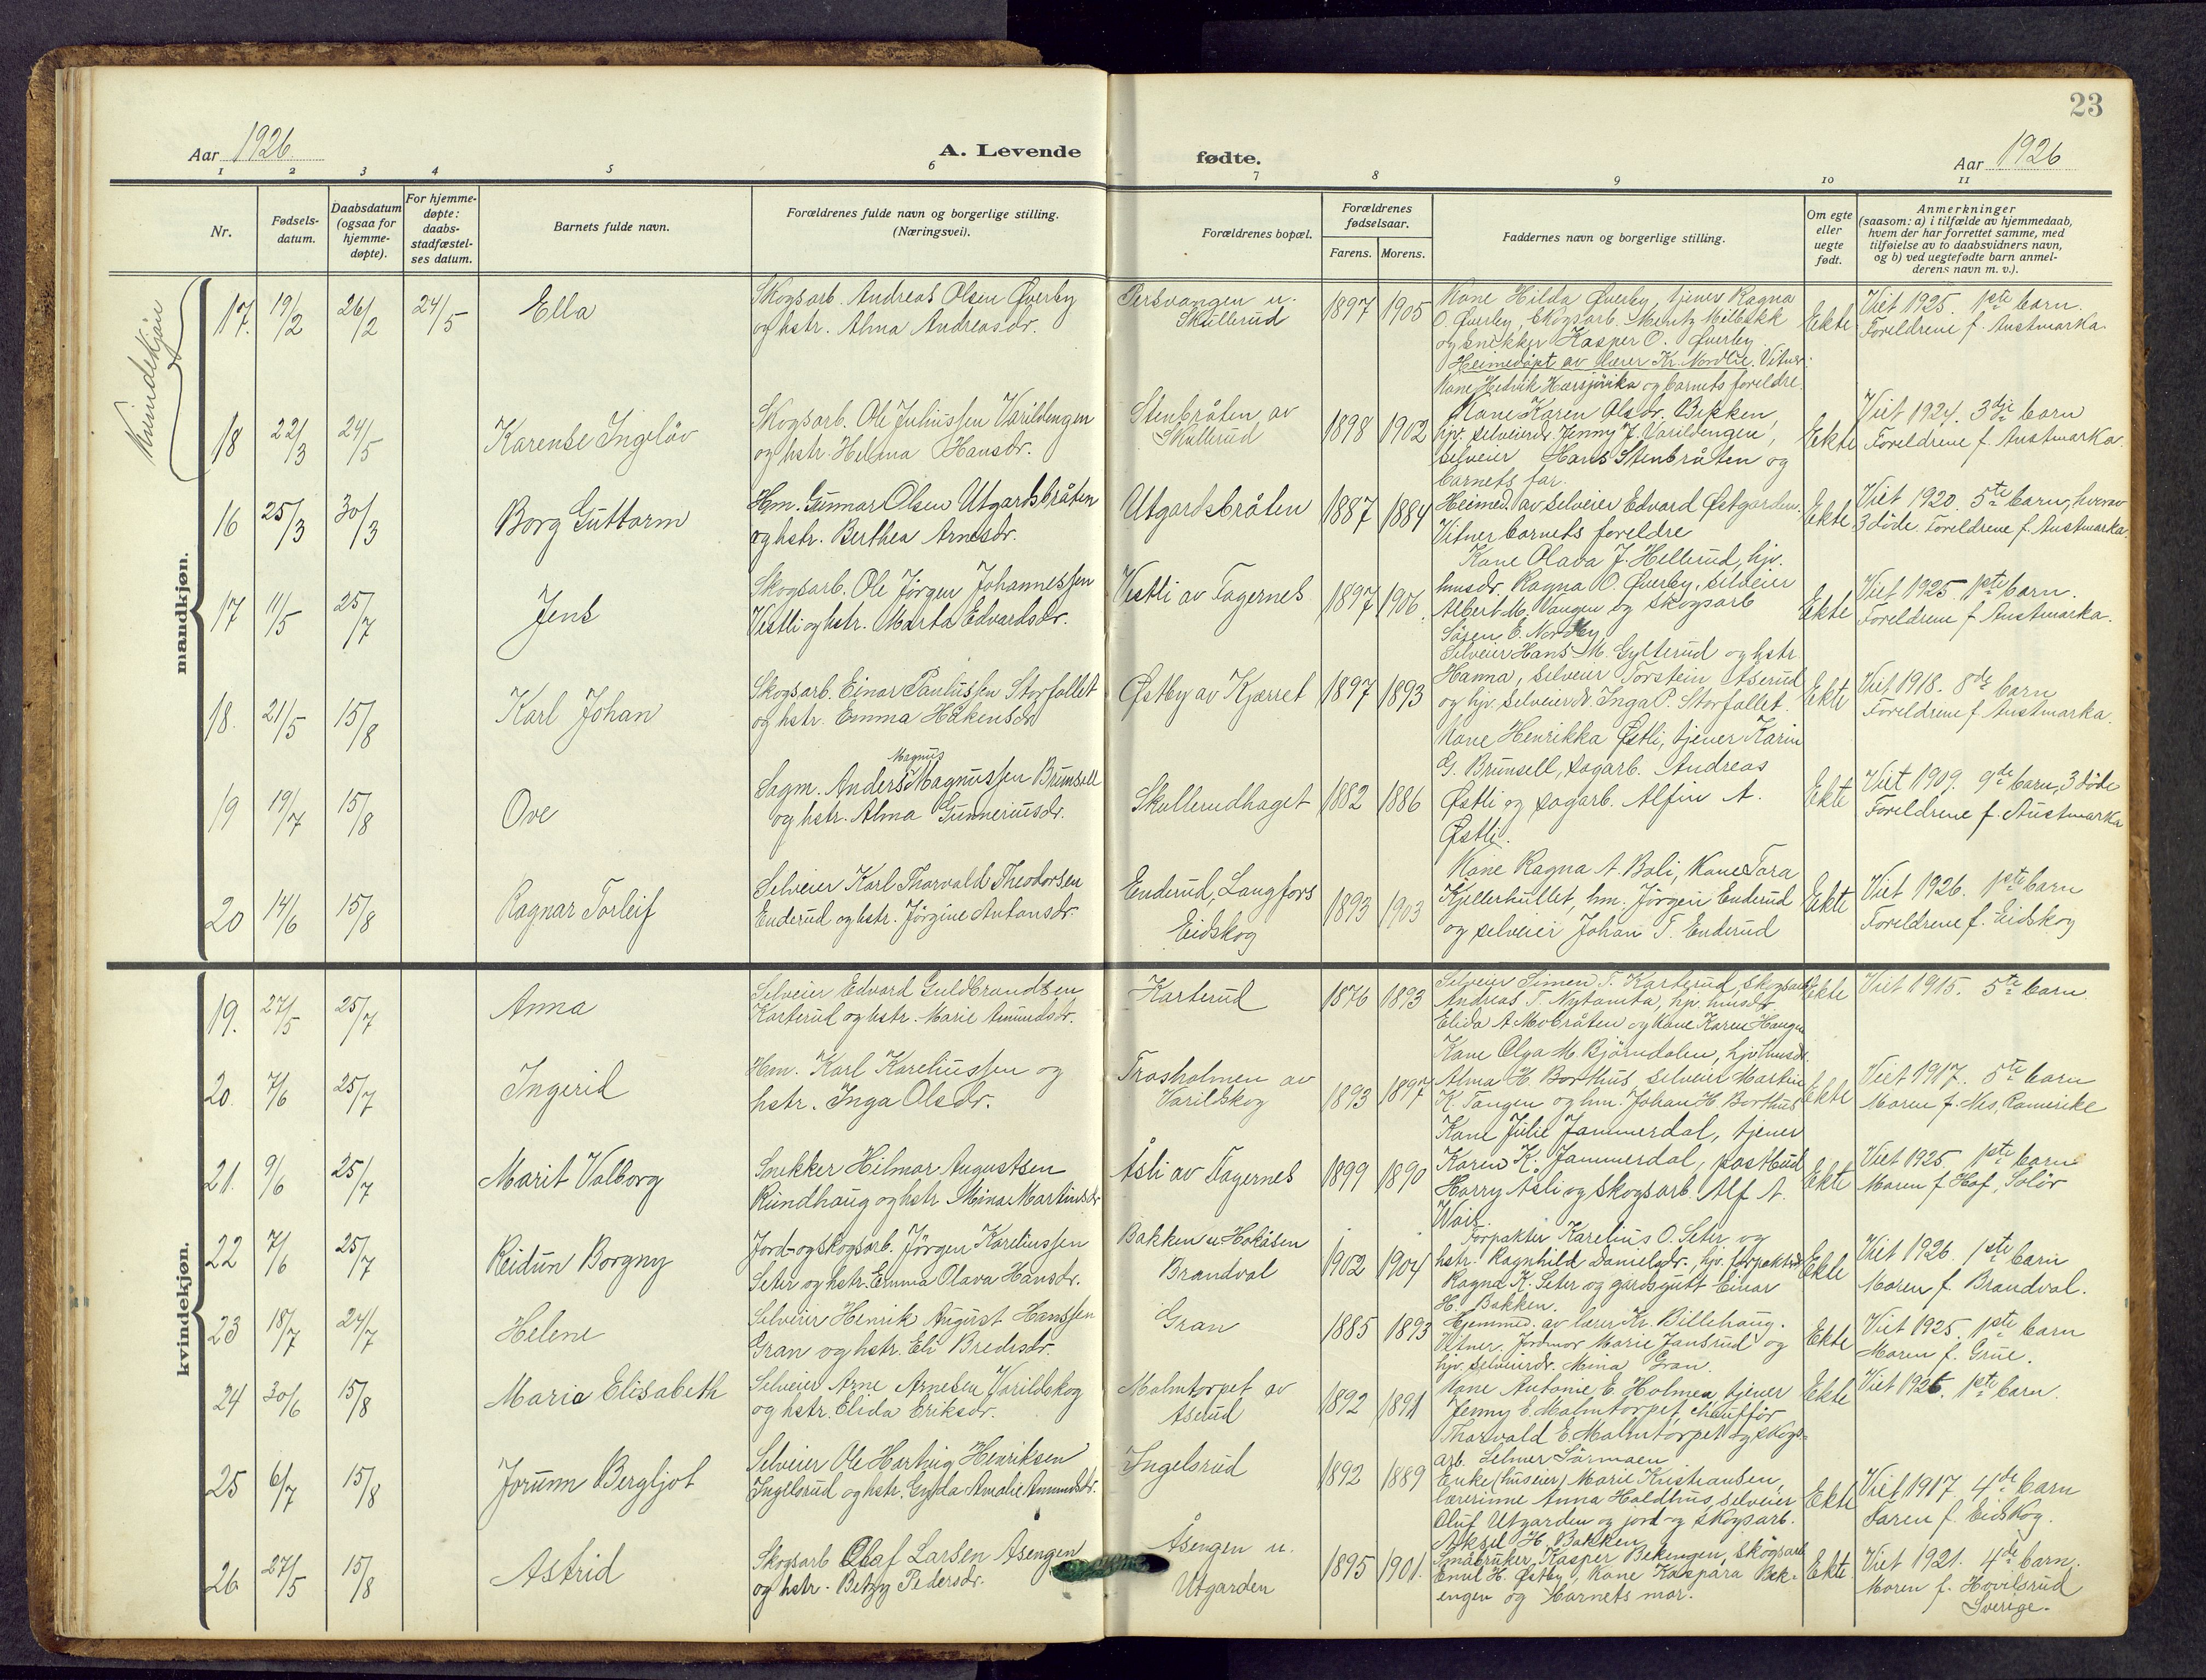 23
Aar 1926
A. Levende fødte.
Aar 1926
1 2 3 4 5 6 7 8 9 10 11
Nr.
Fødsels-
datum.
Daabsdatum
(ogsaa for
hjemme-
døpte).
For hjemme-
døpte:
daabs-
stadfæstel-
ses datum.
Barnets fulde navn.
Forældrenes fulde navn og borgerlige stilling.
(Næringsvei).
Forældrenes bopæl.
Forældrenes
fødselsaar.
Farens. Morens.
Faddernes navn og borgerlige stilling.
Om egte
eller
uegte
født.
Anmerkninger
(saasom: a) i tilfælde av hjemmedaab,
hvem der har forrettet samme, med
tilføielse av to daabsvidners navn,
og b) ved uegtefødte barn anmel-
derens navn m. v.).
Kvindekjøn
mandkjøn.
17. 19/2 26/2 24/5
Ella
Skogsarb. Andreas Olsen Øverby
og hstr. Alma Andreasdr.
Persvangen u.
Skullerud
1897 1905
Kone Hilda Øverby, tjener Ragna
O. Øverby, Skogsarb. Mentz Milbakk
og snekker Kasper O. Øverby
Heimedøpt av lærer Kr. Nordlie. Vitner:
Kone Hedvik Hærsjøvika og barnets foreldre.
Ekte
Viet 1925. 1ste barn.
Foreldrene f. Austmarka.
18 22/3 24/5
Karense Ingeløv
Skogsarb. Ole Juliussen Varildengen
og hstr. Helma Hansdr.
Stenbråten av
Skullerud
1898 1902
Kone Karen Olsdr. Bekken,
hjv. selveierdr. Jenny J. Varildengen,
selveier Hans Stenbråten og
barnets far.
Ekte
Viet 1924. 3dje barn
Foreldrene f. Austmarka.
16 25/3 30/3
Borg Guttorm
Hm. Gunnar Olsen Utgardsbråten
og hstr. Berthea Arnesdr.
Utgardsbråten
1887 1884
Heimed. av selveier Edvard Østgarden.
Vitner barnets foreldre
Ekte
Viet 1920. 5te barn, hverav
3 døde Foreldrene f. Austmarka.
17 11/5 25/7
Jens
Skogsarb. Ole Jørgen Johannessen
Vestli og hstr. Marta Edvardsdr.
Vestli av Fagernes
1897 1906.
Kone Olava J. Hellerud, hjv.
husdr. Ragna O. Øverby, selveier
Albert M. Vangen og skogsarb
Søren E. Nordby
Ekte
Viet 1925 1ste barn.
Foreldrene f. Austmarka.
18. 21/5 15/8
Karl Johan
Skogsarb. Einar Paulussen Storfallet
og hstr. Emma Håkensdr
Østby av Kjærret
1897 1893
Selveier Hans M. Gylterud og hstr
Hanna, selveier Torstein Åserud
og hjv. selveierdr. Inga P. Storfallet.
Ekte
Viet 1918. 8de barn
Foreldrene f. Austmarka.
19 19/7 15/8
Ove
Magnus
Sagm. Anders Magnussen Brunsell
og hstr. Alma Gunneriusdr.
Skullerudhaget
1882 1886
Kone Henrikka Østli, tjener Karin
G. Brunsell, sagarb. Andreas
Østli og sagarb. Alfin A.
Østli.
Ekte
Viet 1909. 9de barn, 3 døde
Foreldrene f. Austmarka
20 14/6 15/8
Ragnar Torleif
Selveier Karl Thorvald Theodorsen
Enderud og hstr. Jørgine Antonsdr.
Enderud, Langfors
Eidskog
1893 1903
Kone Ragna A. Boli, Kone Tora
Kjellerhullet, hm. Jørgen Enderud
og selveier Johan T. Enderud
Ekte
Viet 1926. 1ste barn
Foreldrene f. Eidskog
kvindekjøn.
19. 27/5 25/7
Anna
Selveier Edvard Guldbrandsen
Karterud og hstr. Marie Amundsdr.
Karterud
1876 1893
Selveier Simen T. Karterud, skogsarb
Andreas T. Nytomta, hjv. husdr
Elida A. Mobråten og kone Karen Haugen
Ekte
Viet 1915. 5te barn
20. 7/6 25/7
Ingerid
Hm. Karl Kareliussen og
hstr. Inga Olsdr.
Trosholmen av
Varildskog
1893 1897
Kone Olga M. Bjørndalen, hjv. husdr.
Alma H. Borthus, selveier Martin
K. Tangen og hm. Johan H. Borthus
Ekte
Viet 1917. 5te barn
Moren f. Nes, Romerike
21. 9/6 25/7
Marit Valborg
Snekker Hilmar Augustsen
Rundhaug og hstr. Mina Martinusdr
Åsli av Fagernes
1899 1890
Kone Julie Jammerdal, tjener
Karen K. Jammerdal, postbud
Harry Åsli og skogsarb. Alf A.
Ekte
Viet 1925. 1ste barn
Moren f Hof, Solør
22 7/6 25/7
Reidun Borgny
Jord- og skogsarb. Jørgen Kareliussen
Seter og hstr. Emma Olava Hansdr.
Bakken u Hokåsen
Brandval
1902 1904
Forpakter Karelius O. Seter og
hstr. Ragnhild Danielsdr., hjv. forpakterdr
Ragna K. Seter og gardsgutt Einar
H. Bakken.
Ekte
Viet 1926. 1ste barn
Moren f. Brandval.
23 18/7 24/7
Helene
Selveier Henrik August Hanssen
Gran og hstr. Eli Bredesdr.
Gran
1885 1893
Hjemmed. av lærer Kr. Billehaug.
Vitner. Jordmor Marie Jansrud og
hjv. selveierdr. Mina Gran.
Ekte
Viet 1925. 1ste barn
Moren f. Grue.
24 30/6 15/8
Marie Elisabeth
Selveier Arne Arnesen Varildskog
og hstr. Elida Eriksdr.
Malmtorpet av
Åserud
1892 1891
Kone Antonie E. Holmen, tjener
Jenny E. Malmtorpet, chauffør
Thorvald E. Malmtorpet og skogs-
arb. Selmer Sørmoen
Ekte
Viet 1926. 1ste barn.
25 6/7 15/8
Jorunn Bergljot
Selveier Ole Hartvig Henriksen
Ingelsrud og hstr. Gyda Amalie Amundsdr.
Ingelsrud
1892 1889
Enke (huseier) Marie Kristiansen,
lærerinne Anna Holdhus, selveier
Oluf Utgarden og jord- og skogsarb.
Aksel H. Bakken
Ekte
Viet 1917. 4de barn
Faren f. Eidskog.
26 27/5 15/8
Astrid
Skogsarb Olaf Larsen Åsengen
og hstr. Betzy Pedersdr.
Åsengen u.
Utgarden
1895 1901.
Småbruker Kasper Bekengen, skogsarb
Emil H. Østby, kone Kaspara Bek-
engen og barnets mor.
Ekte
Viet 1921. 4de barn.
Moren f. Hovilsrud
Sverige.